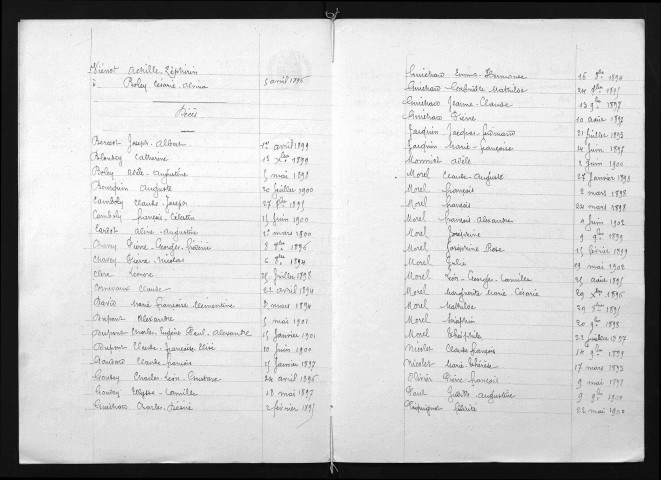 Viénot Achille Zéphirin
à Boley Césarie Alvina 5 avril 1896
Décès
Bercot Joseph Albert 1er avril 1899
Blondey Catherine 13 Xbre 1899
Boley Adèle Augustine 5 mai 1898
Bourquin Auguste 30 juillet 1900
Camboly Claude Joseph 27
Camboly François Célestin 15 juin 1900
Carlot Aline Augustine 1er mars 1900
Chavey Pierre Georges Désiré 8 1896
Chavey Pierre Nicolas 6 1894
Clerc Lénore 25 juillet 1898
Cornevaux Claude 22 avril 1894
David Marie Françoise Clémentine 8 mars 1894
Dupont Alexandre 5 mai 1901
Dupont Charles Eugène Paul Alexandre 15 janvier 1901
Dupont Claude François 10 juin 1900
Claude François 15 janvier 1897
Charles Léon Constant 24 avril 1896
Camille 18 mai 1897
Charles Désiré 2 février 1895
Emma Hermance 16 1894
Mathilde 24 9bre 1895
Jeanne Claude 13 9bre 1898
Pierre 10 août 1892
Jacquin Jacques Ferdinand 21 juillet 1893
Jacquin Marie Françoise 24 juin 1897
Monniot Adèle 8 juin 1900
Morel Claude Auguste 27 janvier 1893
Morel François 2 mars 1898
Morel François 24 mars 1898
Morel François Alexandre 4 juin 1902
Morel Joséphine 9 9bre 1899
Morel Joséphine Rose 15 février 1899
Morel Julie 19 mai 1902
Morel Léon Georges Camille 25 août 1895
Morel Marguerite Marie Césarie 29 Xbre 1896
Morel Mathilde 29 1895
Morel Séraphin 20 9bre 1898
Morel Théophile 22 juillet 1897
Nicolet Claude François 14 9bre 1899
Nicolet Marie Thérèse 17 mars 1893
Olivier Pierre François 9 mai 1895
Paul Juliette Augustine 9 9bre 1900
Piquignot Désirée 22 mai 1900